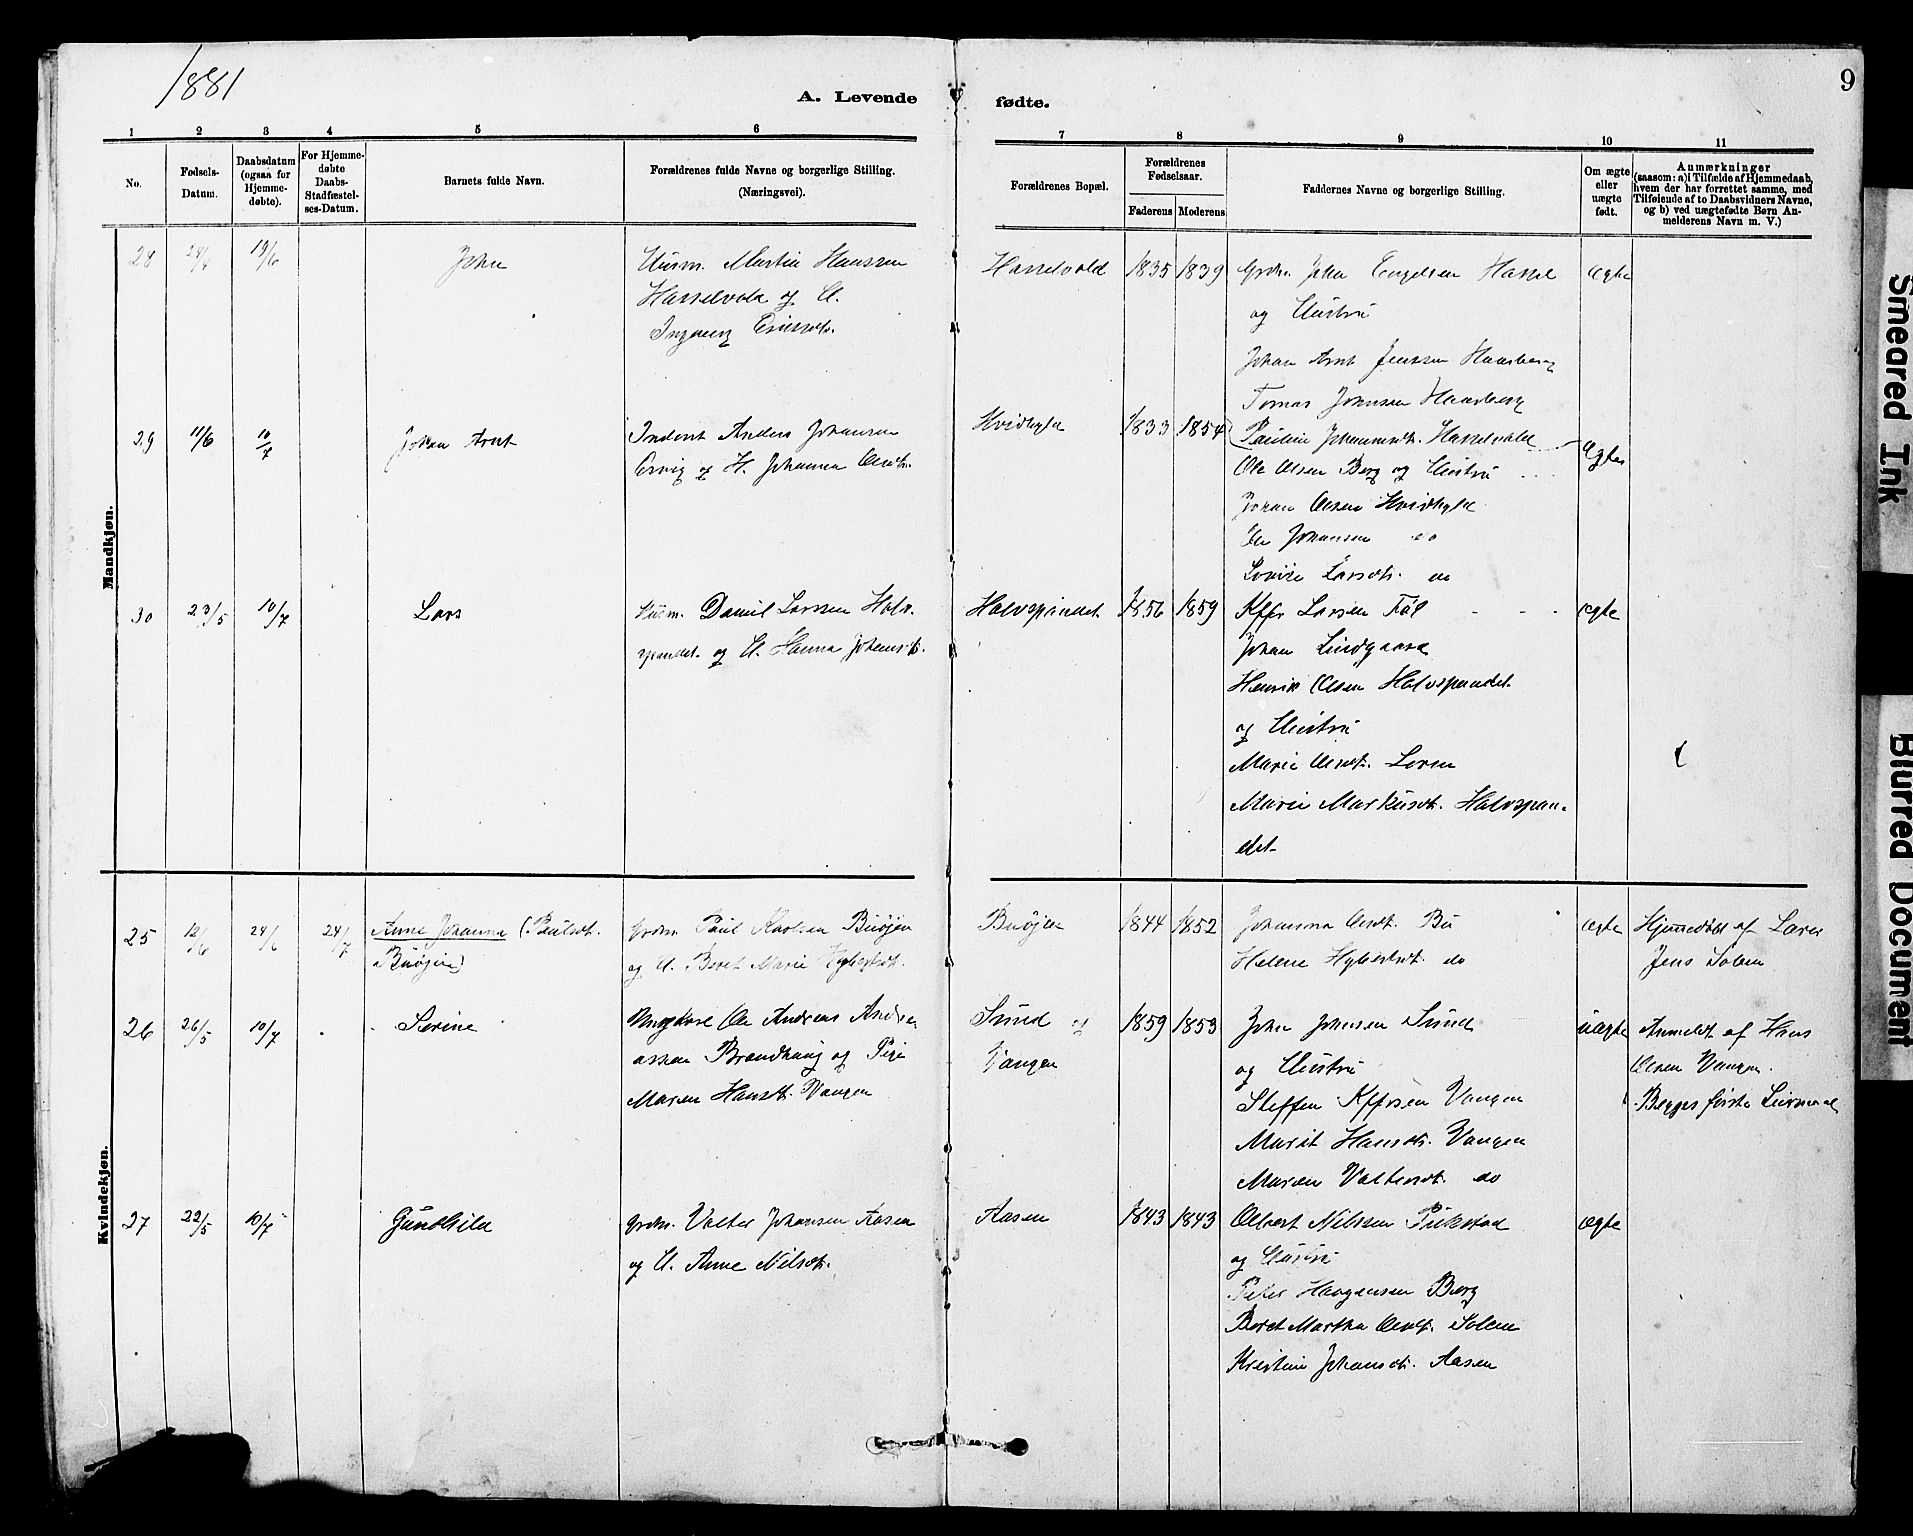 1881
9
A. Levende fødte.
1 2 3 4 5 6 7 8 9 10 11
No.
Fødsels-
Datum.
Daabsdatum
(ogsaa for
Hjemme-
døbte).
For Hjemme-
døbte
Daabs-
Stadfæstel-
ses-Datum.
Barnets fulde Navn.
Forældrenes fulde Navne og borgerlige Stilling.
(Næringsvei).
Forældrenes Bopæl.
Forældrenes
Fødselsaar.
Faderens Moderens
Faddernes Navne og borgerlige Stilling.
Om ægte
eller
uægte
født.
Anmærkninger
(saasom: a) i Tilfælde af Hjemmedaab,
hvem der har forrettet samme, med
Tilføiende af to Daabsvidners Navne,
og b) ved uægtefødte Børn An-
melderens Navn m. V.)
Mandkjøn.
28 24/4 19/6 John
Husm. Martin Hanssen
Hasselvold og H.
Ingeborg
Hasselvold 1835 1839
Grdm. John Engelsen Hassel
og Hustru
Johan Arnt Jenssen Haarberg
Tomas Johnsen Haarberg
Pauline Johannesdt. Hasselvold
ægte
29 11/6 10/7 Johan Arnt
Inderst Anders Johansen
og H. Johanna Olsdt.
Hvidhyld 1833 1854
Ole Olsen Berg og Hustru
Johan Olsen Hvidhyld
Ole Johansen do
Lovise Larsdt. do
ægte
30 23/5 10/7 Lars
Husm. Daniel Larssen Halv-
spandet og H. Hanna Johansdt.
Halvspandet 1856 1859
Kffr Larsen Føl
Johan Lindgaard
Henrik Olsen Halvspandet
og Hustru
Marie Olsdt. Loren
Marie Markusdt. Halvspan-
det
ægte
Kvindekjøn.
25 12/6 24/6 24/7 Anne Johanna (Paulsdt.
Buøjen)
Grdm. Paul Karlsen Buøjen
og H. Beret Marie
Buøjen 1844 1852
Johanna Olsdt. Bu
Helene do
ægte
Hjemmedøbt af Lærer
Jens Solem
26 26/5 10/7 Serine
Ungkarl Ole Andreas Andre-
assen Brandhaug og Pige
Maren Hansdt. Vangen
Sund og
Vangen
1859 1853
John Johnsen Sund
og Hustru
Steffen Kffrsen Vangen
Marit Hansdt. Vangen
Maren Valtersdt. do
uægte
Anmeldt af Hans
Olsen Vangen.
Begges første Leiermaal
27 22/5 10/7 Gunhild
Grdm. Valter Johansen Aasen
og H. Anne Nilsdt.
Aasen 1843 1843
Albert Nilssen Pukstad
og Hustru
Peter Haagensen Berg
Beret Martha Olsdt. Solem
Kristine Johansdt. Aasen
ægte
Smeared Ink
Blurred Document